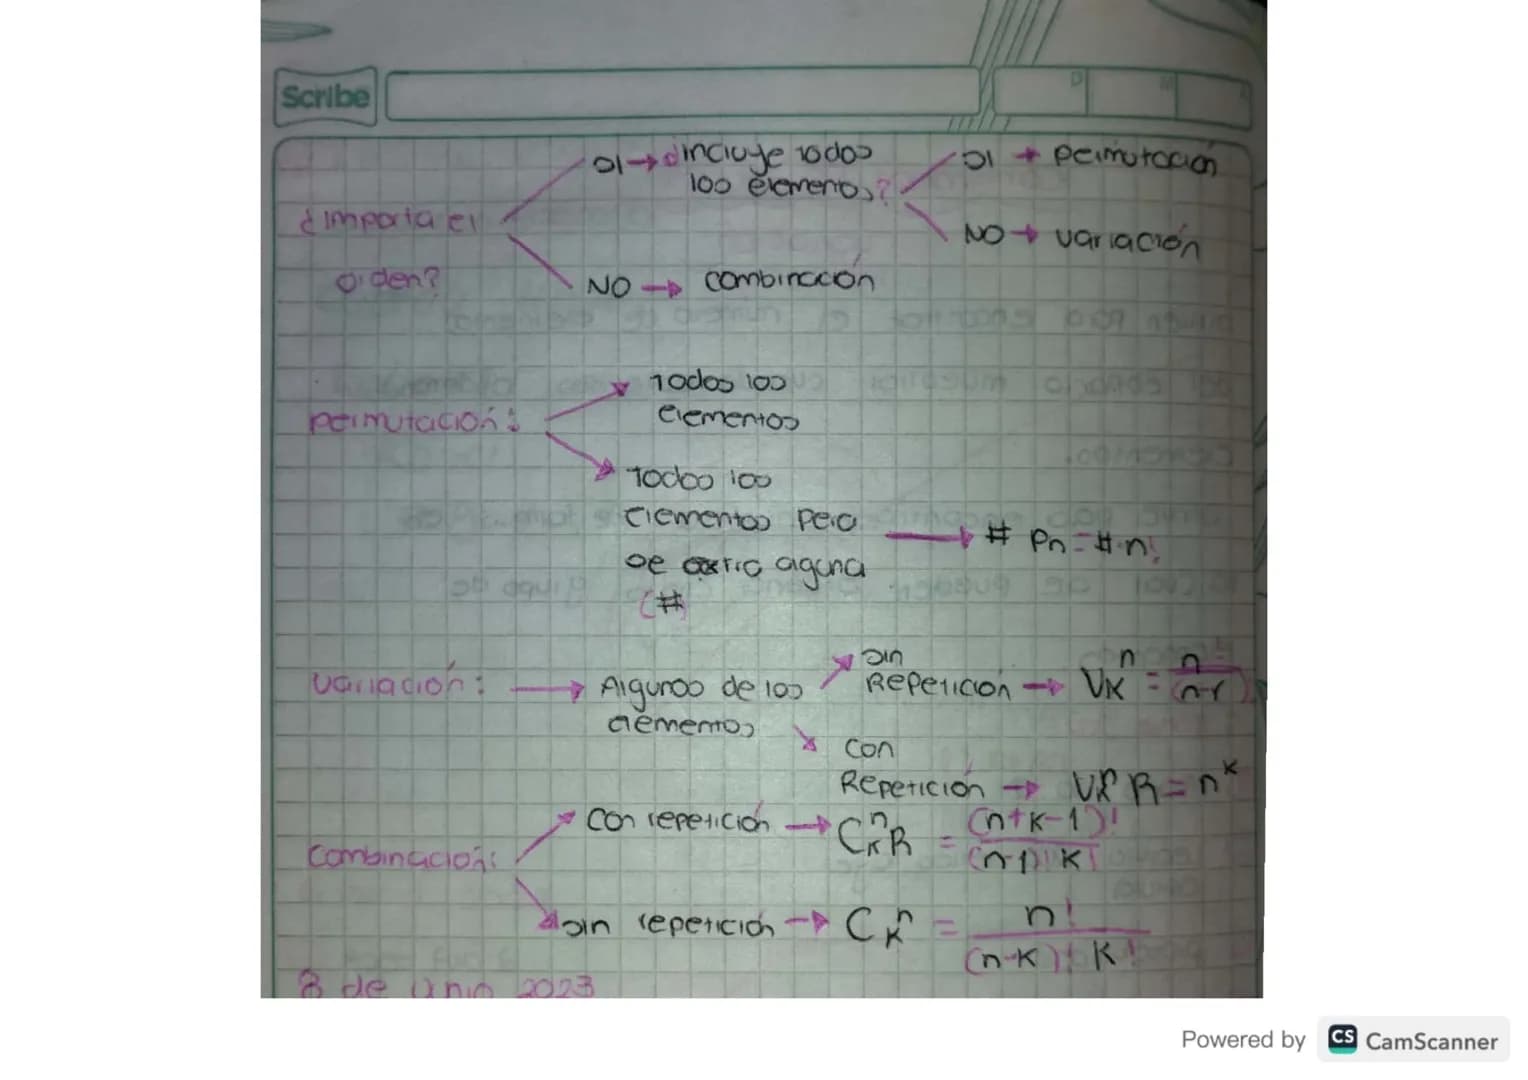 Scribe
SI → ¿incluye todos los elementos? SI → permutación
¿importa el orden?
NO → variación
NO → combinación
permutación: Todos los elementos
Todos los elementos pero de
(#
→ # Pn = #·n!
variación: → Algunos de los elementos
sin Repetición →
con Repetición → R = n^k
combinación:
con repetición → C_K^n R = (n+K-1)! / (n-1)! K!
sin repetición → C_K^n = n! / (n-K)! K!
8 de 2023
Powered by CS CamScanner